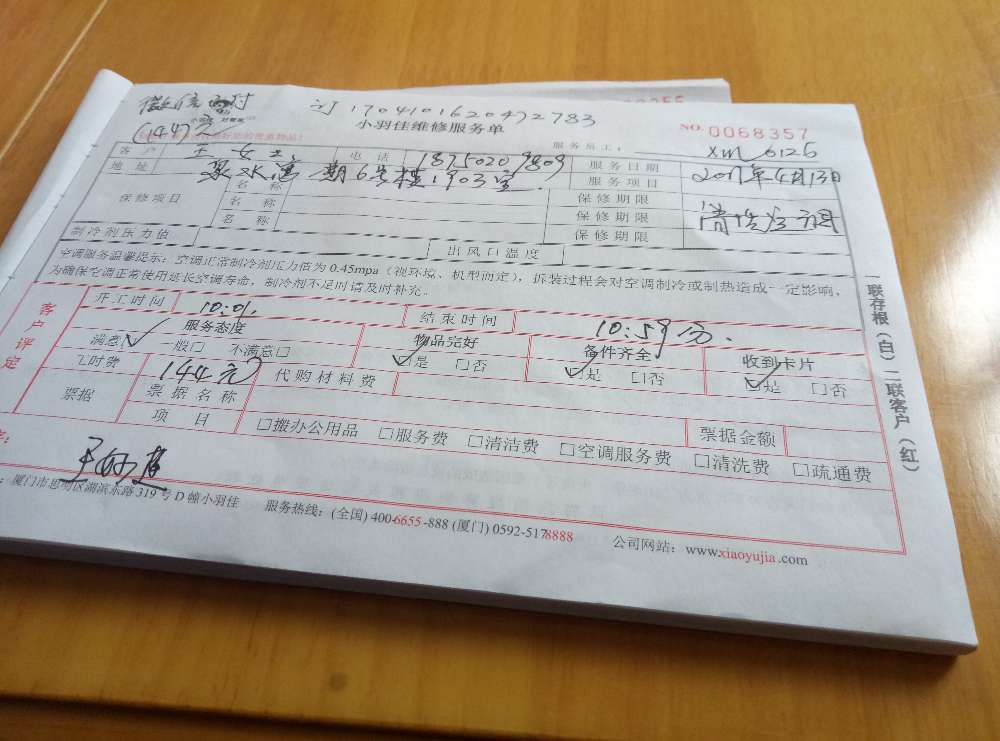 微信
订 1704101620472783
144元
小羽佳维修服务单
NO. 0068357
服务员工: xm 6126
客户 王女士 电话 服务日期 2017年4月13日
地址 期6号楼1903室 服务项目
保修项目 名称 保修期限
名称 保修期限
名称 保修期限
制冷剂压力值 出风口温度
空调服务温馨提示:空调正常制冷剂压力值为0.45mpa(视环境、机型而定),拆装过程会对空调制冷或制热造成一定影响,
为确保空调正常使用延长空调寿命,制冷剂不足时请及时补充。
客户评定
开工时间 10:01 结束时间 10:59分
服务态度 物品完好 备件齐全 收到卡片
满意 般□ 不满意□ 是 □否 是 □否 是 □否
工时费 144元 代购材料费
票据 票据名称 票据金额
项目 □搬办公用品 □服务费 □清洁费 □空调服务费 □清洗费 □疏通费
一联存根(白)二联客户(红)
厦门市思明区湖滨东路319号D幢小羽佳 服务热线:(全国)400-6655-888 (厦门)0592-5178888 公司网站:www.xiaoyujia.com